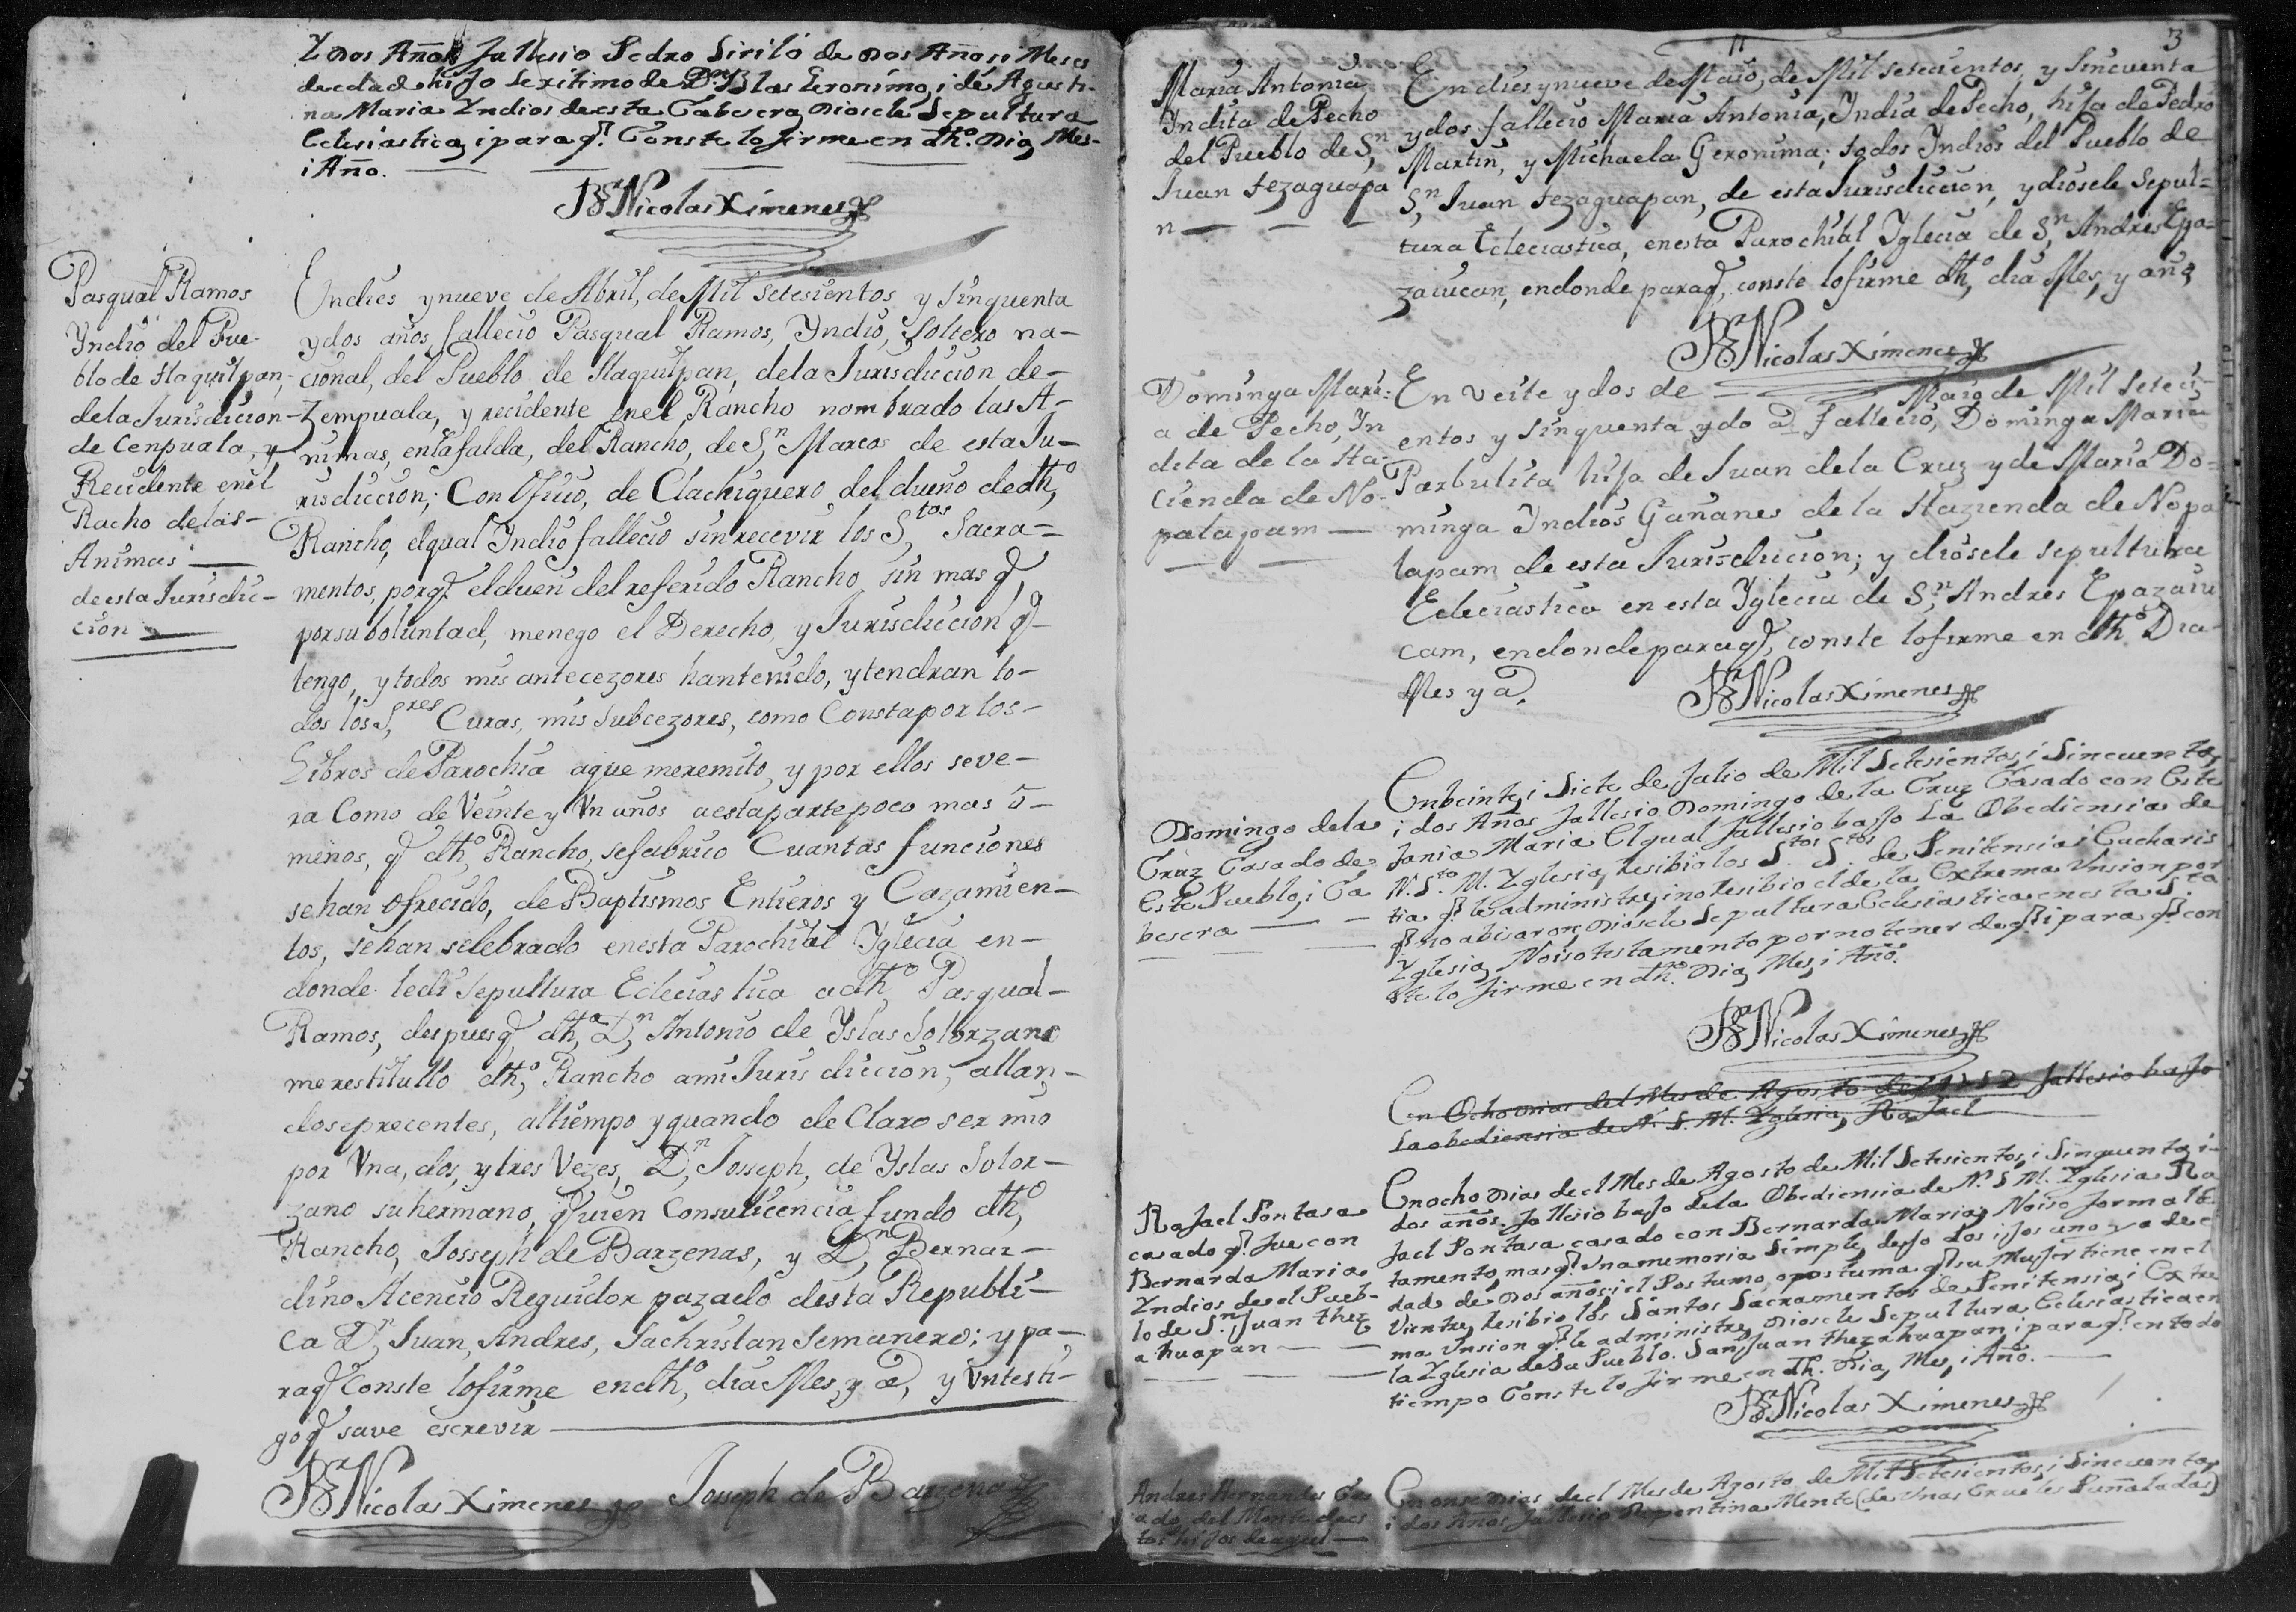 Y Dos Años fallesio Pedro Sirilo de Dos Años i Meses
de edad hijo lexitimo de Dn Blas Geronimo, i de Agusti-
na Maria Yndios de esta Cabesera Diosele Sepultura
Eclesiastica, i para q.e Conste lo firme en dho. Dia, Mes-
i Año.
Br Nicolas Ximenes
Pasqual Ramos
Yndio del Pue-
blo de tlaquilpan,
de la Jurisdicion-
de Cenpuala, y
Recidente en el
Racho de las-
Animas
de esta Jurisdic-
cion
En dies y nueve de Abril, de Mil setesientos y Sinquenta
y dos años, fallecio Pasqual Ramos, Yndio, Soltero na-
cional, del Pueblo de tlaquilpan, de la Jurisdiccion de-
Zempuala, y recidente en el Rancho nombrado las A-
nimas, en la falda, del Rancho, de Sn Marcos de esta Ju-
risdiccion; Con Ofiio, de Clachiquero del dueño de dho
Rancho, el qual Yndio fallecio sin recevir los Stos Sacra=
mentos, porq.e el dueñ del referido Rancho, sin mas q.e
por su boluntad, me nego el Derecho, y Jurisdiccion q.e-
tengo, y todos mis antecezores han tenido, y tendran to-
dos los Sres Curas, mis Subcezores, como Consta por los-
Libros de Parochia aque me remito, y por ellos se ve-
ra Como de Veinte y Vn años a esta parte poco mas ô-
menos, q.e dho Rancho, se fabrico Cuantas funciones
se han ofrecido, de Baptismos Entieros y Cazamien-
tos, se han selebrado en esta Parochial Yglecia en-
donde le di Sepultura Ecleciastica a dho Pasqual-
Ramos, despues q.e dho Dn Antonio de Yslas Solorzano
me restitullo dho Rancho a mi Jurisdiccion, allan-
dose precentes, al tiempo y quando declaro ser mio
por Vna, dos, y tres Vezes, Dn Joseph, de Yslas Solor-
zano su hermano, q.e uien Con su licencia fundo dho
Rancho, Josseph de Barzenas, y Dn Bernar-
dino Acencio Reguidor pazado desta Republi-
ca Dn Juan, Andres, Sachristan Semanero: y pa-
raq.e Conste lo firme en dho, dia Mes, y a, y Vn testi-
go q.e save escrevir
Br Nicolas Ximenes Josseph de Barzenas
3
Maria Antonia
Yndita de Pecho
del Pueblo de Sn
Juan tezaguapa
n
En dies y nueve de Maio, de Mil setecientos, y Sincuenta
y dos fallecio Maria Antonia, India de Pecho, hija de Pedro
Martin, y Michaela Geronima; todos Yndios del Pueblo de
Sn Juan tezaguapan, de esta Jurisdiccion, y diosele Sepul=
tura Ecleciastica, en esta Parochial Yglecia de Sn Andres Epa=
zaiucan, endonde paraq.e conste lo firme dho, dia Mes, y año,
Br Nicolas Ximenes
Dominga Mari-
a de Pecho, Yn
dita de la Ha-
cienda de No-
palapam
En Veite y dos de Maio de Mil Seteci-
entos y Sinquenta y do a fallecio, Dominga Maria
Parbulita hija de Juan de la Cruz y de Maria Do=
minga Yndios Gañanes de la Hazienda de Nopa
lapam de esta Jurisdiccion; y diosele sepultura
Ecleciastica en esta Yglecia de Sn Andres Epazaiu
cam, endonde paraq.e, conste lo firme en dho Dia-
Mes y a,
Br Nicolas Ximenes
Domingo de la
Cruz Casado de
Este Pueblo, i Ca
besera
En beinte, i Siete de Julio de Mil Setesientos, i Sincuenta,
i dos Años fallesio Domingo de la Cruz Casado con Este
fania Maria El qual fallesio baxo La Obediensia de
N. Sta M. Yglesia, Resibio los Stos Stos de Penitensia i Eucharis
tia q.e le administre, i no Resibio el de la Extrema Vnsion por
q.e no abisaron, Diosele Sepultura Eclesiastica en esta Sta
Yglesia, No iso testamento por no tener de q.e i para q.e con
ste lo firme en dho. Dia, Mes, i Año.
Br Nicolas Ximenes
En Ocho Dias del Mes de Agosto de 1752 fallesio baxo
La obediensia de N. S. M. Yglesia, Rafael
Rafael Pontasa
casado q.e fue con
Bernarda Maria
Yndios de el Pueb-
lo de Sn Juan thez
ahuapan
En ocho Dias de el Mes de Agosto de Mil Setesientos, i Sinquenta, i-
dos años. fallesio baxo de la Obediensia de N. S M. Yglesia Ra
fael Pontasa casado con Bernarda Maria, No iso forma les
tamento, mas q.e Vna memoria Simple, dejo dos ijos uno ya de e
dad de Dos años i el Postumo, o postuma q.e su Mujer tiene en el
Vientre, Resibio los Santos Sacramentos de Penitensia, i Extre
ma Vnsion q.e le administre, Diosele Sepultura Eclesiastica en
la Yglesia de Su Pueblo. San Juan thezahuapan, i para q.e en todo
tiempo Conste lo firme en dho. Dia, Mes, i Año.
Br Nicolas Ximenes
Andres Hernandes Cas
ado, del Monte de es
tos hijos de aquel
En onse Dias de el Mes de Agosto de Mil Setesientos, i Sincuenta,
i dos Años fallesio Repentina Mente (de Vnas Crueles Puñaladas)